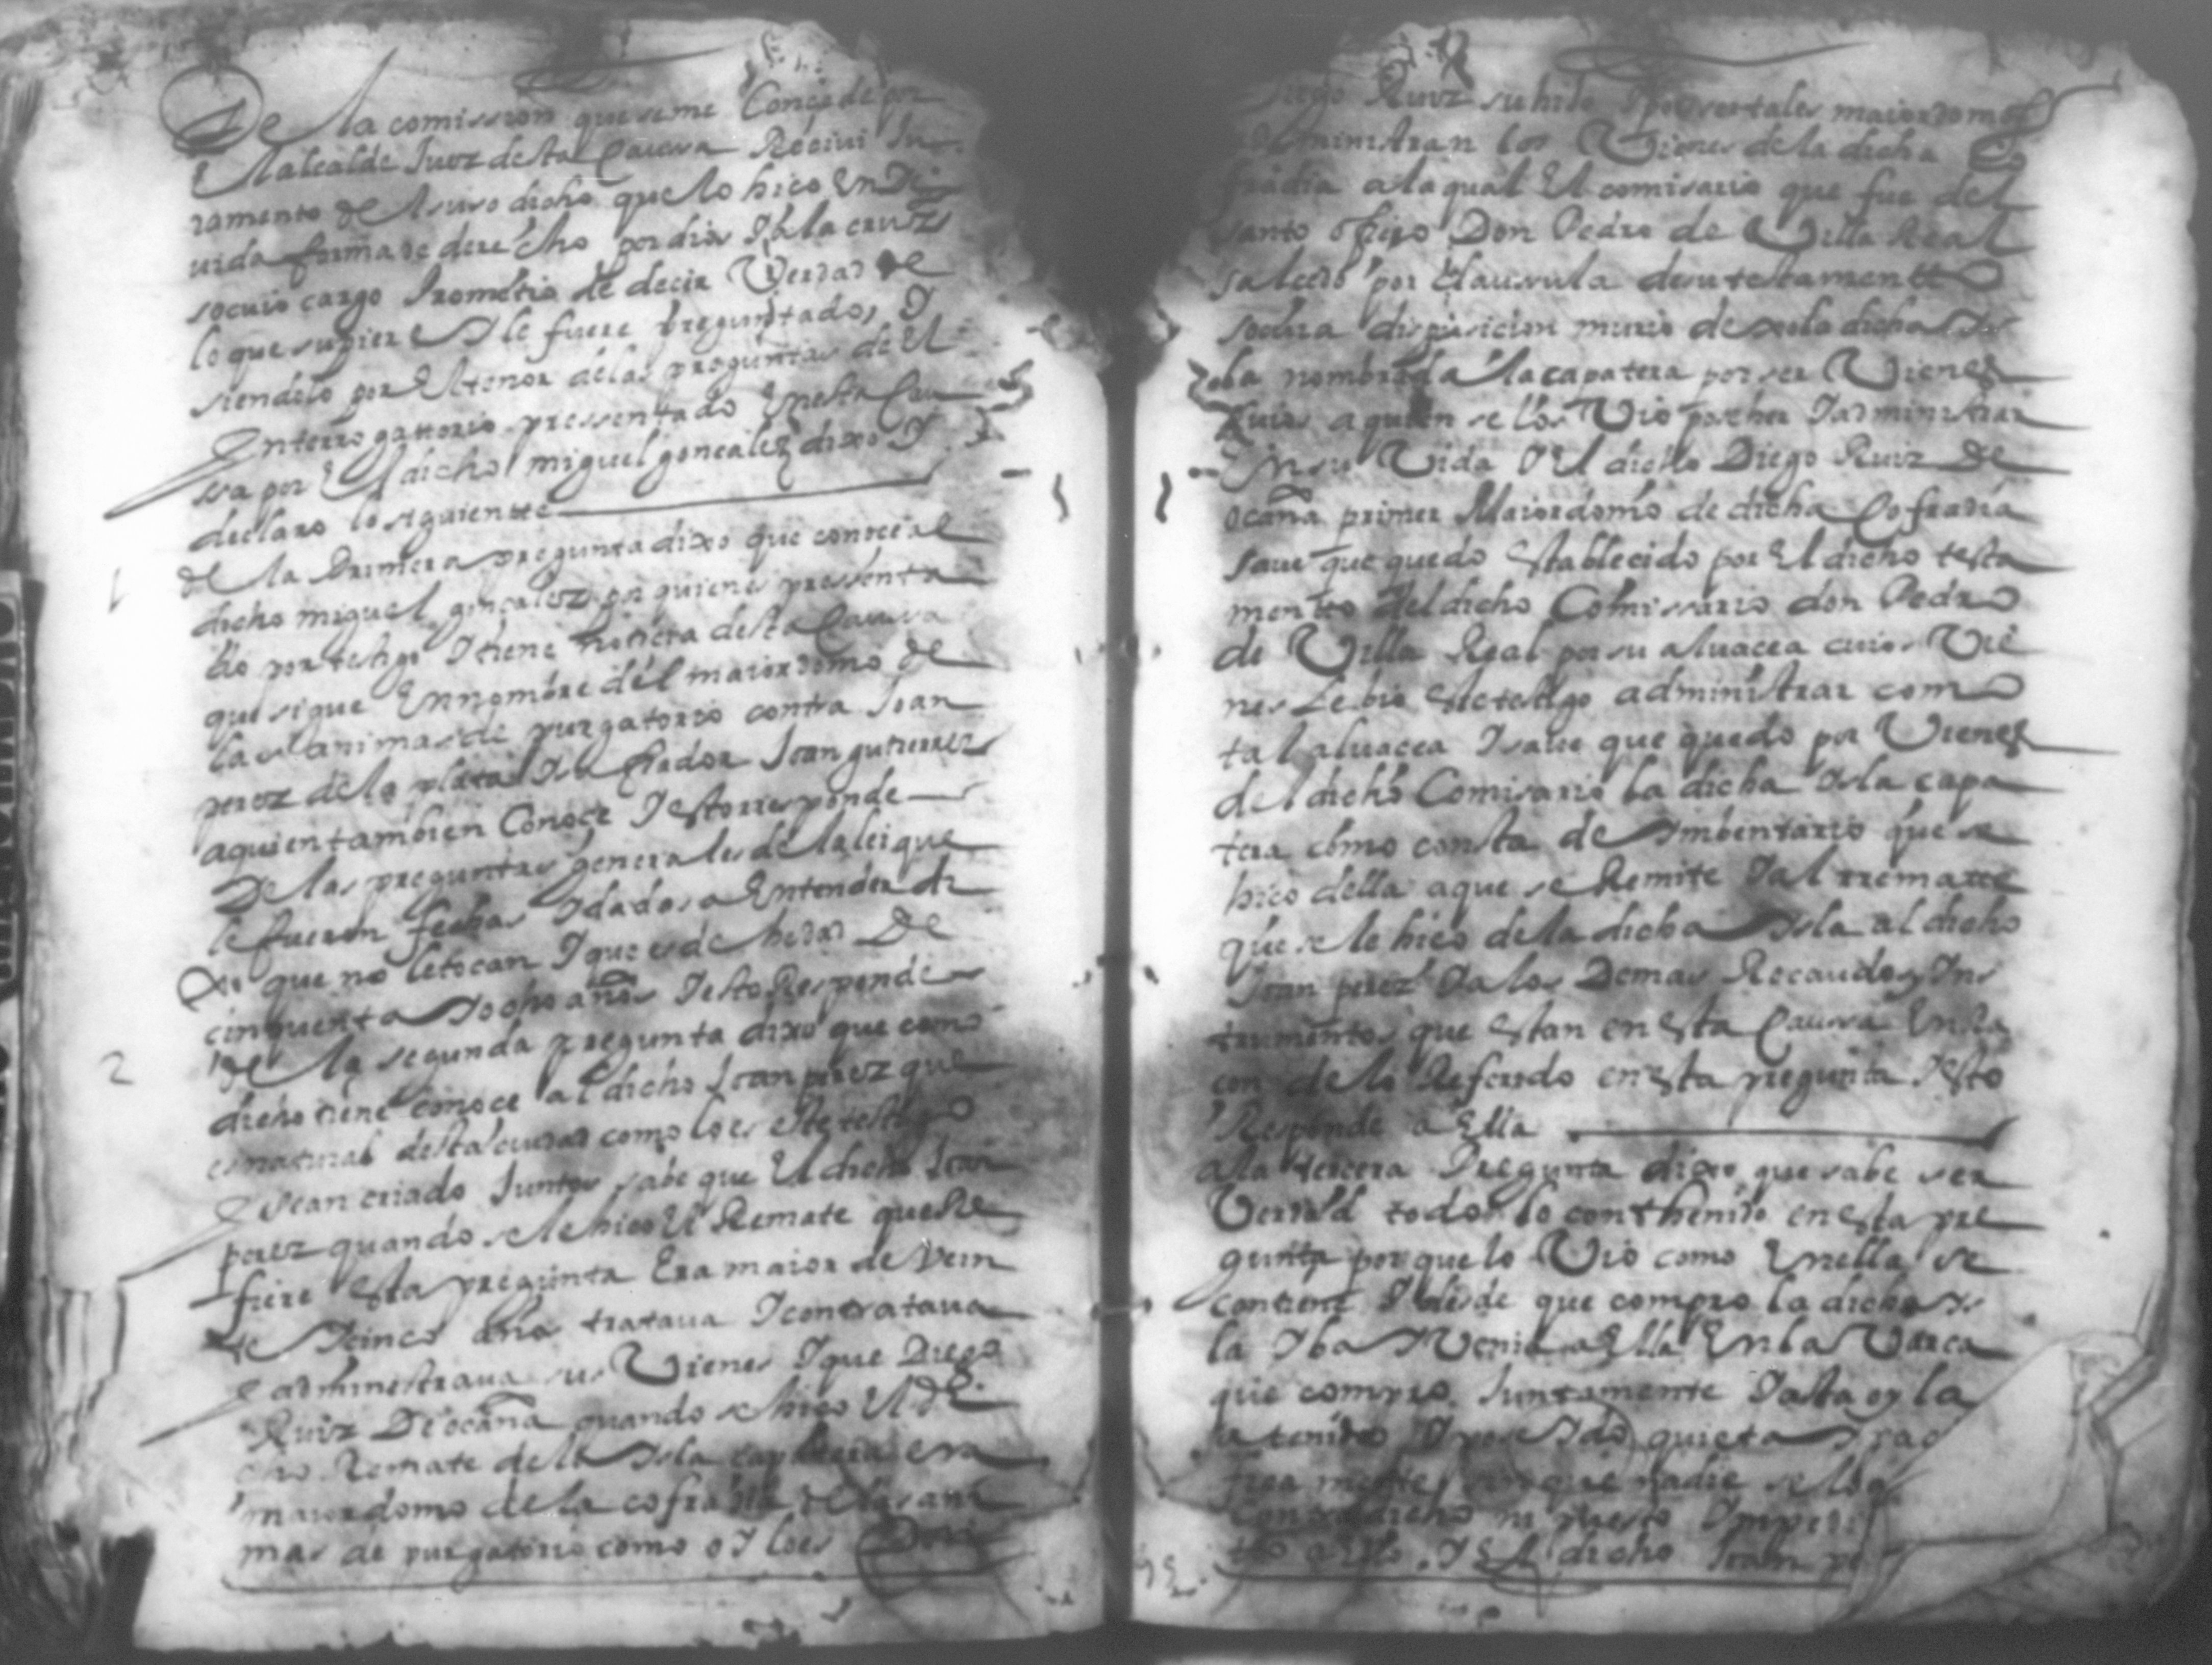 De la comission que se me Conçede por
El alcalde Juez desta Caussa Reciui Ju
ramento del suso dicho que lo hico En De
uida forma de derecho por dios Y a la cruz
so cuio cargo Prometio de decir Verdad de
lo que supiere Y le fuere preguntado, Y
siendolo por El tenor de las preguntas de El
Ynterrogattorio pressentado En esta Cau
sa por El dicho miguel goncalez dixo Y
declaro lo siguientte
1 de la Primera pregunta dixo que conoce al
dicho miguel goncalez por quien es pressenta
do por testigo Y tiene noticia desta Caussa
que sigue En nombre del maiordomo de
las animas de purgatorio contra Joan
perez de la plata Y su fiador Joan gutierrez
a quien tambien Conoce Y esto rresponde
De las preguntas generales de la lei que
le fueron fechas Y dados a Entender di
xo que no le tocan Y que es de hedad De
cinquenta Y ocho años Y esto Responde
2 de la segunda pregunta dixo que como
dicho tiene conoce al dicho Joan perez que
es natural desta ciudad como lo es este testigo
Y se an criado Juntos sabe que El dicho Joan
perez quando se le hico El Remate que Re
fiere Esta pregunta Era maior de Vein
te Y cinco años trataua Y contrataua
Y administraua sus Vienes Y que Diego
Ruiz De ocaña quando se hico El di
cho Remate de la Ysla capatera era
maiordomo de la cofradia de las ani
mas de purgatorio como oy lo es
Diego Ruiz su hijo Y por ser tales maiordomos
administran los Vienes de la dicha Co
fradia a la qual El comisario que fue del
santo officio Don Pedro de Villa Real
salcedo por Clausula de su testamentto
so cuia disposicion murio dexo la dicha Ys
la nombrada la capatera por ser Vienes
suios a quien se los Vio poseher Y administrar
En su Vida Y El dicho Diego Ruiz de
ocaña primer Maiordomo de dicha Cofradia
saue que quedo Establecido por El dicho testa
mento del dicho Comissario don Pedro
de Villa Real por su aluacea cuios Vie
nes le bio este testigo administrar como
tal aluacea Y saue que quedo por Vienes
del dicho Comisario la dicha Ysla capa
tera como consta de Ymbentario que se
hico della a que se Remite Y al rremate
que se le hico de la dicha Ysla al dicho
Joan perez Y a los Demas Recaudos Y Ins
trumentos que estan en esta Caussa En Ra
con de lo Referido en esta pregunta Y esto
Responde a Ella
a la tercera Pregunta dixo que sabe ser
Verdad todo lo conthenido en esta pre
gunta porque lo Vio como En ella se
contiene Y desde que compro la dicha Ys
la Yba Y Venia a Ella En la Varca
que compro Juntamente Y asta oy la
a tenido Y poseydo quieta Y pac
fica mente sin que nadie se lo a
contradicho ni puesto Ympedi
to a ello. Y El dicho Joan pe